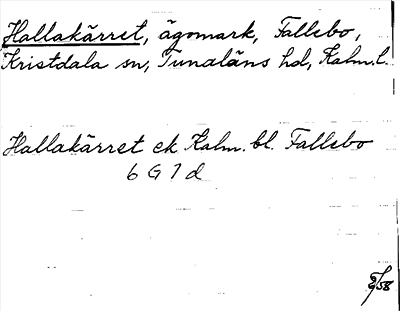 Hallakärret, ägomark, Fallebo,
Kristdala sn, Tunaläns hd, Kalm. l.
Hallakärret ek Kalm. bl. Fallebo
6 G 7 d